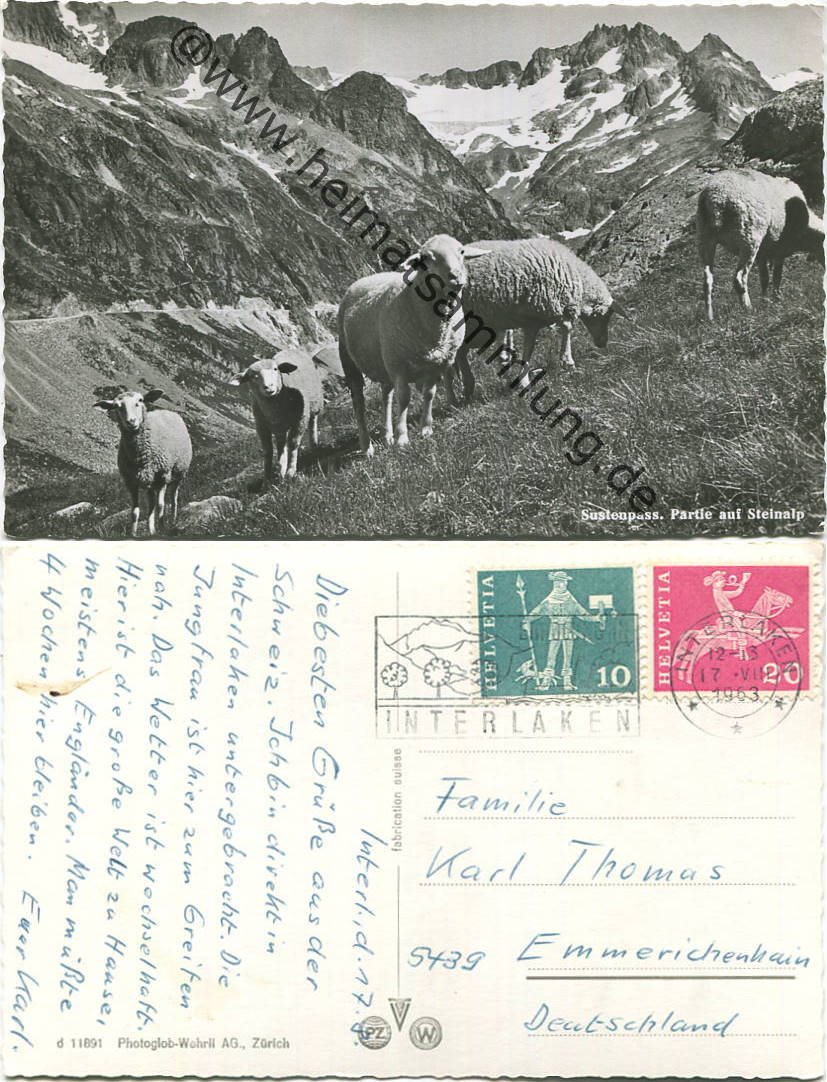 @www.heimatsammlung.de
Sustenpass. Partie auf Steinalp
HELVETIA
10
HELVETIA
20
INTERLAKEN
INTERLAKEN
12-13
17.VII
1963
Interl., d. 17.
Die besten Grüße aus der
Schweiz. Ich bin direkt in
Interlaken untergebracht. Die
Jungfrau ist hier zum Greifen
nah. Das Wetter ist wechselhaft.
Hier ist die große Welt zu Hause,
meistens Engländer. Man müßte
4 Wochen hier bleiben. Euer Karl.
fabrication suisse
Familie
Karl Thomas
5439 Emmerichenhain
Deutschland
d 11891 Photoglob-Wehrli AG., Zürich
PZ
W